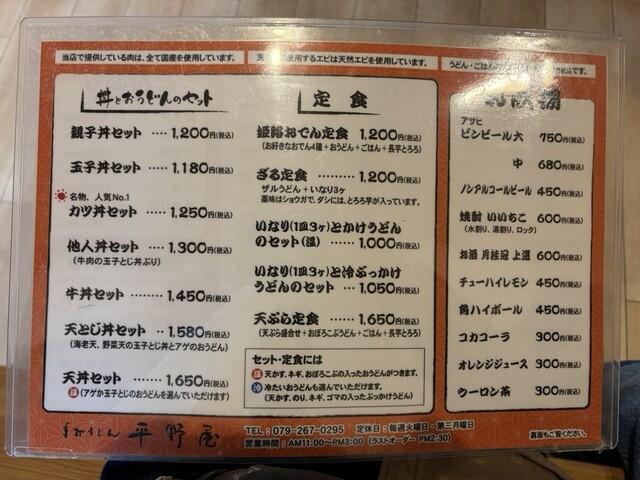 当店で提供している肉は、全て国産を使用しています。
使用するエビは天然エビを使用しています。
うどん・ごはん
税込です。
丼とおうどんのセット
親子丼セット ···· 1,200円(税込)
玉子丼セット ···· 1,180円(税込)
名物、人気No.1
カツ丼セット ···· 1,250円(税込)
他人丼セット ···· 1,300円(税込)
(牛肉の玉子とじ丼ぶり)
牛丼セット ···· 1,450円(税込)
天とじ丼セット ·· 1,580円(税込)
(海老天、野菜天の玉子とじ丼とアゲのおうどん)
天丼セット ···· 1,650円(税込)
温(アゲか玉子とじのおうどんを選んでいただけます)
定食
姫路おでん定食 1,200円(税込)
(お好きなおでん4種+おうどん+ごはん+長芋とろろ)
ざる定食 ········ 1,200円(税込)
ザルうどん+いなり3ヶ
薬味はショウガで、ダシには、とろろ芋が入っています。
いなり(1皿3ヶ)とかけうどん
のセット(温) ······ 1,000円(税込)
いなり(1皿3ヶ)と冷ぶっかけ
うどんのセット ··· 1,050円(税込)
天ぷら定食 ······ 1,650円(税込)
(天ぷら盛合せ+おぼろこぶうどん+ごはん+長芋とろろ)
セット・定食には
温 天かす、ネギ、おぼろこぶの入ったおうどんがつきます。
冷 冷たいおうどんも選んでいただけます。
(天かす、のり、ネギ、ゴマの入ったぶっかけうどん)
お飲物
アサヒ
ビンビール大 750円(税込)
中 680円(税込)
ノンアルコールビール 450円(税込)
焼酎 いいちこ 600円(税込)
(水割り、湯割り、ロック)
お酒 月桂冠 上選 600円(税込)
チューハイレモン 450円(税込)
角ハイボール 450円(税込)
コカコーラ 300円(税込)
オレンジジュース 300円(税込)
ウーロン茶 300円(税込)
手打うどん 平野屋
TEL:079-267-0295 定休日:毎週火曜日・第三月曜日
営業時間:AM11:00〜PM3:00 (ラストオーダー PM2:30)
裏面もご覧ください。